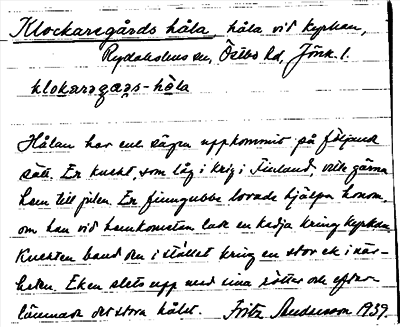 Klockaregårds håla, håla vid kyrkan,
Rydaholms sn, Östbo hd, Jönk. l.
klokaragaɷs-håla
Hålan har enl. sägen uppkommit på följande
sätt. En knekt, som låg i krig i Finland, ville gärna
hem till julen. En finngubbe lovade hjälpa honom,
om han vid hemkomsten lade en kedja kring kyrkan.
Knekten band den i stället kring en stor ek i när-
heten. Eken slets upp med sina rötter och efter-
lämnade det stora hålet. Fritz Andersson 1939.